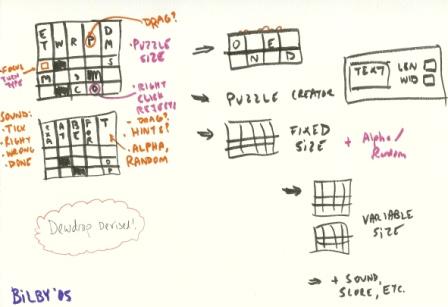 DRAG?
E W R P D
T M
S
M
C O
• PUZZLE
SIZE
• FOCUS
THEN
TYPE
• RIGHT
CLICK
REJECT!
SOUND:
• TICK
• RIGHT
• WRONG
• DONE
• DRAG?
HINTS?
• ALPHA,
RANDOM
Dewdrop Devised!
BILBY '05
O E
N D
PUZZLE CREATOR
TEXT
LEN
WID
FIXED
SIZE
+ Alpha/
Random
VARIABLE
SIZE
+ SOUND,
SCORE, ETC.